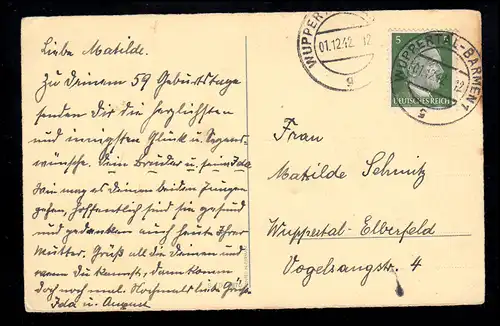 Liebe Matilde.
Zu Deinem 59 Geburtstage
senden Dir die herzlichsten
und innigsten Glück u. Segens-
wünsche. Dein Bruder u. seine Ida.
Wie mag es Deinen beiden Jungen
gehen, hoffentlich sind sie gesund
und gedenken auch heute Ihrer
Mutter. Grüß all die Deinen und
wenn Du kannst, dann komm
doch noch mal. Nochmals liebe Grüße
Ida u. August
WUPPERTAL
01.12.42 12
g
5
DEUTSCHES REICH
WUPPERTAL-BARMEN 1
g
Frau
Matilde Schmitz
Wuppertal-Elberfeld
Vogelsangstr. 4